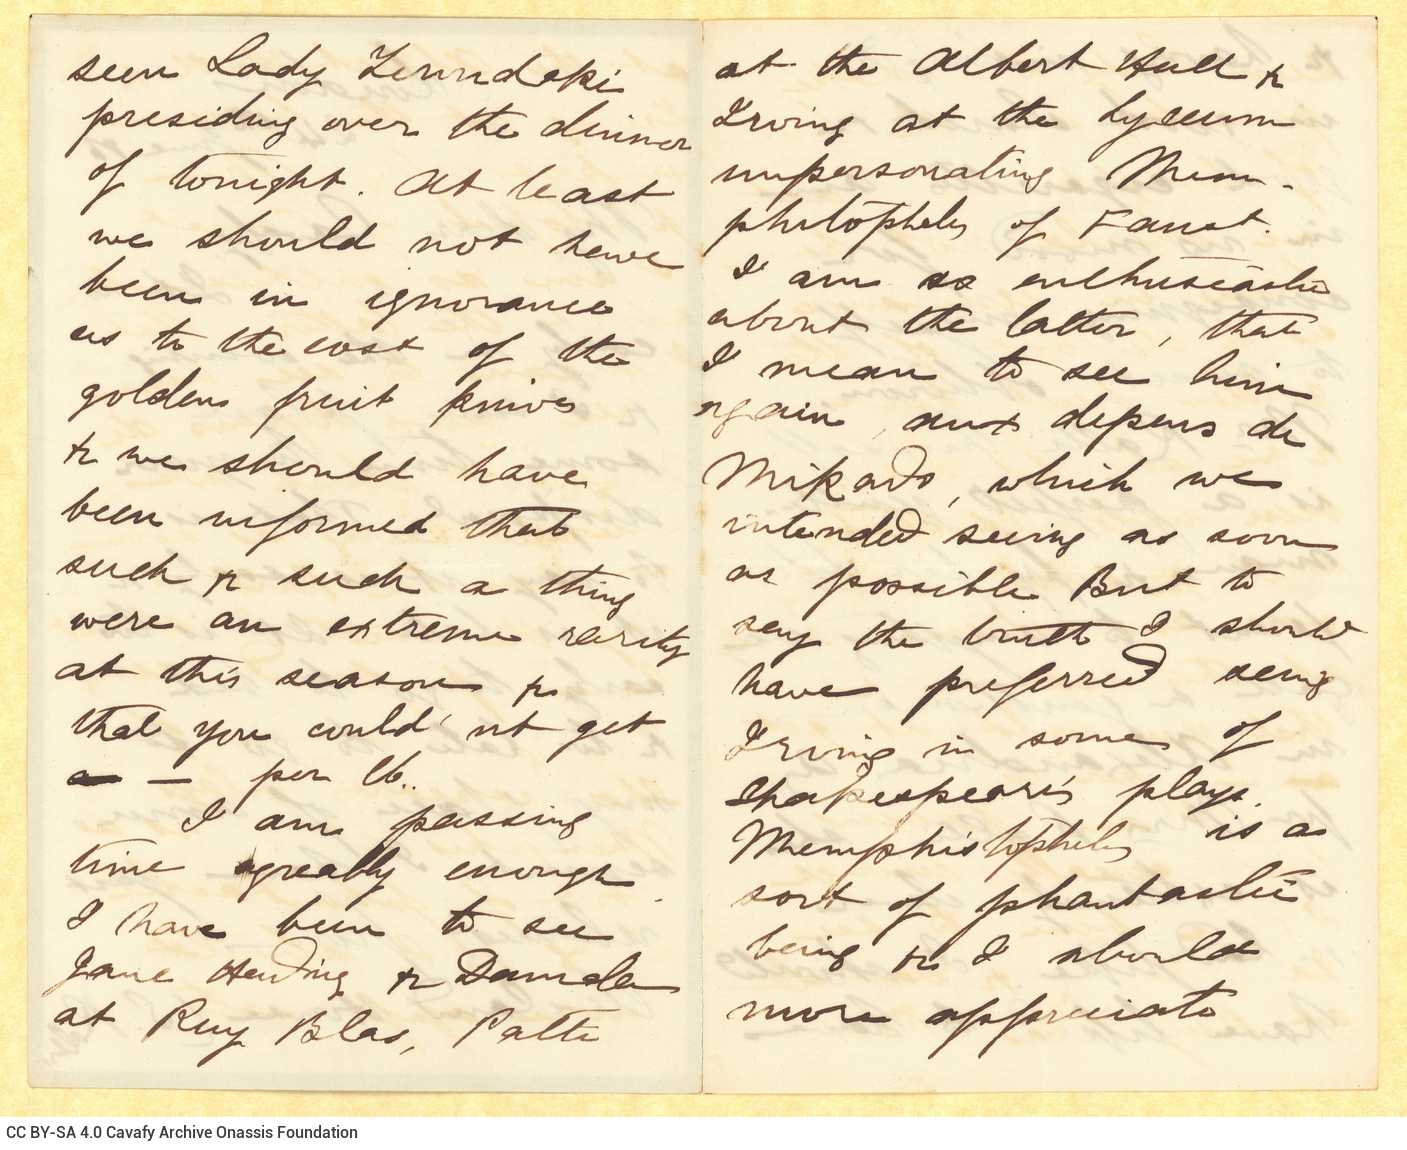 seen Lady
presiding over the dinner
of tonight. At least
we should not have
been in ignorance
as to the cost of the
golden fruit knives
& we should have
been informed that
such & such a thing
were an extreme rarity
at this season &
that you could'nt get
— per lb..
I am passing
time agreably enough
I have been to see
Jane Hading & Damala
at Ruy Blas, Patti
at the Albert Hall &
Irving at the Lyceum
impersonating Mem-
phistopheles of Faust.
I am so enthusiastic
about the latter, that
I mean to see him
again, aux depens de
Mikado, which we
intended seeing as soon
as possible But to
say the truth I should
have preferred seing
Irving in some of
Shakespeare's plays.
Memphistopheles is a
sort of phantastic
being & I should
more appreciate
CC BY-SA 4.0 Cavafy Archive Onassis Foundation